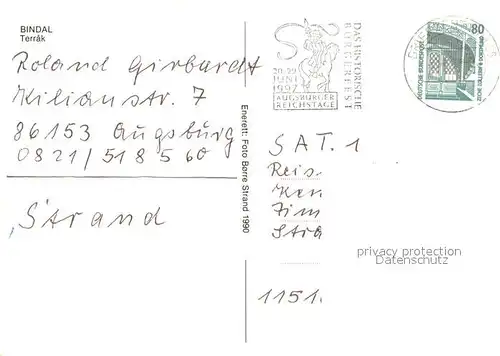 BINDAL
Terråk
Roland Girbardt
Kilianstr. 7
86153 Augsburg
0821/518560
'Strand
Enerett: Foto Børre Strand 1990
DAS HISTORISCHE
BÜRGERFEST
20.-29.
JUNI
1997
AUGSBURGER
REICHSTAGE
80
DEUTSCHE BUNDESPOST
SAT.1
Reis.
Ken
Zim
Stra
1151.
privacy protection
Datenschutz